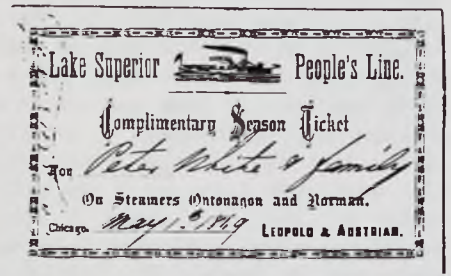 Lake Superior People's Line.
Complimentary Season Ticket
For Peter White & family
On Steamers Ontonagon and Norman.
Chicago, May 1st 1869 LEOPOLD & AUSTRIAN.